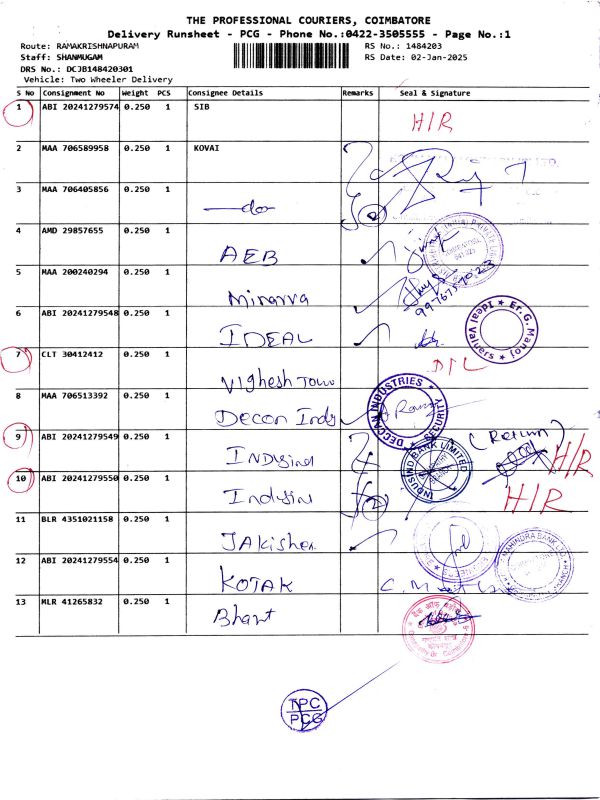 THE PROFESSIONAL COURIERS, COIMBATORE
Delivery Runsheet - PCG - Phone No.:0422-3505555 - Page No.:1
Route: RAMAKRISHNAPURAM RS No.: 1484203
Staff: SHANMUGAM RS Date: 02-Jan-2025
DRS No.: DCJB148420301
Vehicle: Two Wheeler Delivery
S No Consignment No Weight PCS Consignee Details Remarks Seal & Signature
1 ABI 20241279574 0.250 1 SIB
H/R
2 MAA 706589958 0.250 1 KOVAI
3 MAA 706405856 0.250 1
do
4 AMD 29857655 0.250 1
AEB
5 MAA 200240294 0.250 1
Minarva
6 ABI 20241279548 0.250 1
IDEAL
Er. G. Manoj
Ideal Valuers
7 CLT 30412412 0.250 1
D/L
Vighesh Tow
8 MAA 706513392 0.250 1
Decon Inds
DECCAN INDUSTRIES
SECURITY
9 ABI 20241279549 0.250 1
(Return)
H/R
INDUSIND BANK LIMITED
10 ABI 20241279550 0.250 1
H/R
11 BLR 4351021158 0.250 1
JAkishen
12 ABI 20241279554 0.250 1
KOTAK
MAHINDRA BANK LTD.
13 MLR 41265832 0.250 1
TPC
PCG